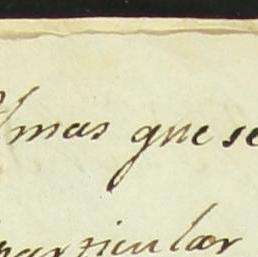 mas que se
particular